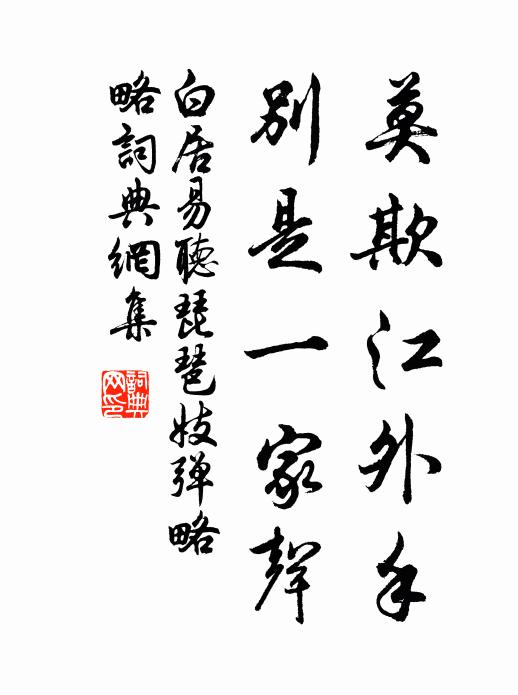 莫欺江外手
別是一家聲
白居易聽琵琶妓彈略
略詞典網集
詞典
网印